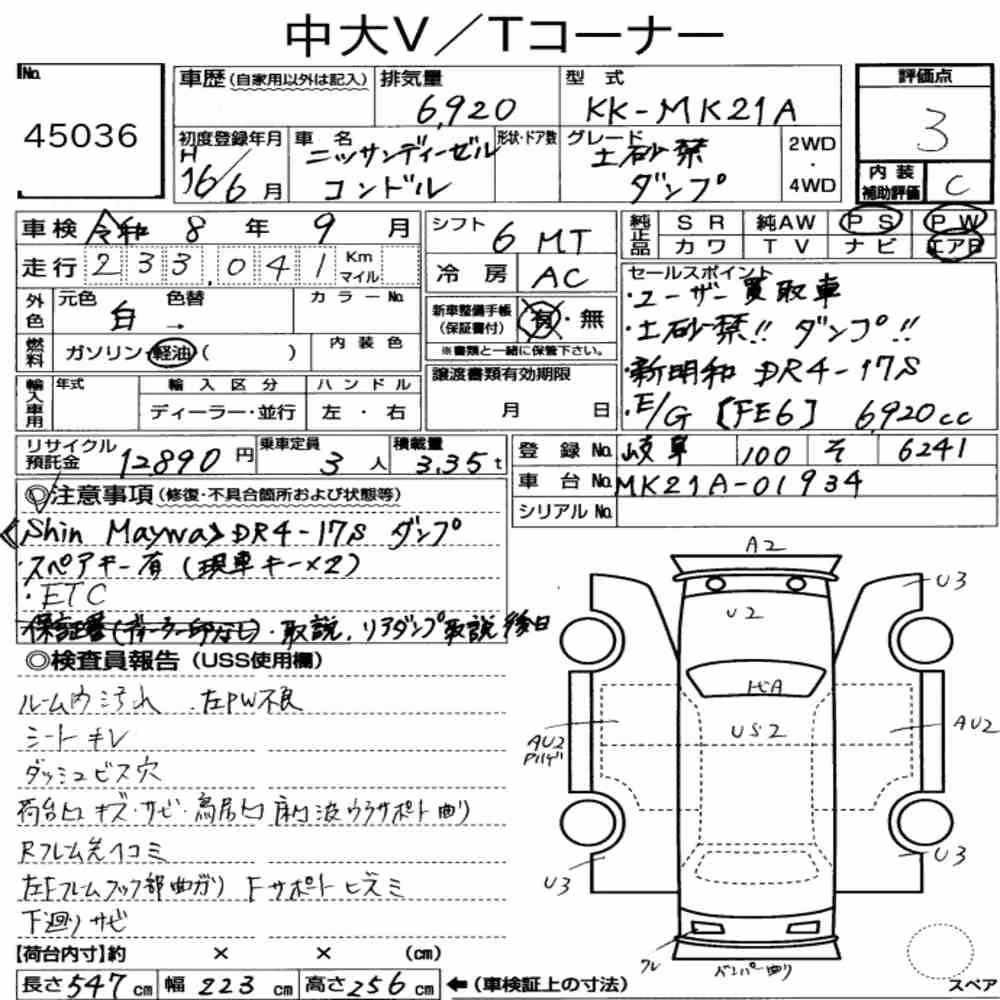 中大V／Tコーナー
No.
45036
車歴(自家用以外は記入)
排気量
6,920
型式
KK-MK21A
評価点
3
内装補助評価
C
初度登録年月
H16/6月
車名
ニッサンディーゼル
コンドル
形状・ドア数
グレード
土砂禁
ダンプ
2WD
・
4WD
車検 令和 8年 9月
走行 233,041 Km マイル
外色
元色 白
色替 →
カラーNo.
燃料
ガソリン・軽油( )
内装色
輸入車用
年式
輸入区分
ディーラー・並行
ハンドル
左・右
シフト 6 MT
冷房 AC
新車整備手帳(保証書付) 有・無
※書類と一緒に保管下さい。
譲渡書類有効期限
月 日
純正品
SR 純AW PS PW
カワ TV ナビ エアB
セールスポイント
・ユーザー買取車
・土砂禁!! ダンプ!!
・新明和 DR4-17S
・E/G [FE6] 6,920cc
リサイクル預託金 12890円
乗車定員 3人
積載量 3.35t
登録No. 岐阜 100 そ 6241
車台No. MK21A-01934
シリアルNo.
◎注意事項(修復・不具合箇所および状態等)
《Shin Maywa》DR4-17S ダンプ
・スペアキー有(現車キー×2)
・ETC
保証書(ディーラー印なし)・取説、リアダンプ取説後日
◎検査員報告(USS使用欄)
ルーム内汚れ 左PW不良
シートキレ
ダッシュビス穴
荷台凹キズ・サビ・鳥居凹 床凹波ウラサポート曲り
Rフレム先ヘコミ
左Fフレムフック部曲ガリ Fサポートヒズミ
下廻りサビ
【荷台内寸】約 × × (cm)
長さ547cm 幅223cm 高さ256cm ←(車検証上の寸法)
A2
U3
U2
U3
ヒビA
US2
AU2
AU2
U3
U3
ワレ
バンパー曲り
スペア